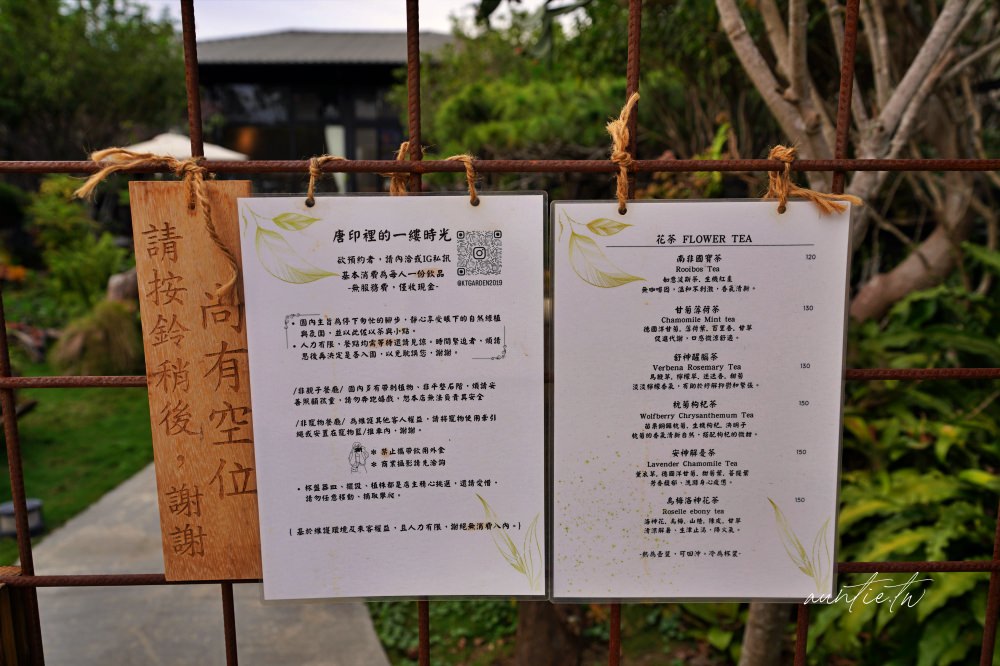 尚有空位
請按鈴稍後，謝謝
唐印裡的一縷時光
欲預約者，請內洽或IG私訊
基本消費為每人一份飲品
-無服務費，僅收現金-
@KTGARDEN2019
• 園內主旨為停下匆忙的腳步，靜心享受眼下的自然綠植
與花園，並以此佐以茶與小點。
• 人力有限，餐點均需等待還請見諒。時間緊迫者，煩請
思後再決定是否入園，以免耽誤您，謝謝。
/非親子餐廳/ 園內多有帶刺植物、非平整石階，煩請妥
善照顧孩童，請勿奔跑嬉戲，恕本店無法負責其安全
/非寵物餐廳/ 為維護其他客人權益，請將寵物使用牽引
繩或安置在寵物籃/推車內，謝謝。
* 禁止攜帶飲用外食
* 商業攝影請先洽詢
• 杯盤器皿、擺設、植株都是店主精心挑選，還請愛惜，
請勿任意移動、摘取攀爬。
{ 基於維護環境及來客權益，且人力有限，謝絕無消費入內。}
花茶 FLOWER TEA
南非國寶茶 120
Rooibos Tea
如意波斯茶, 生機紅產
無咖啡因，溫和不刺激，香氣清新。
甘菊薄荷茶 130
Chamomile Mint tea
德國洋甘菊, 薄荷葉, 百里香, 甘草
促進代謝，口感微涼舒適。
舒神醒腦茶 130
Verbena Rosemary Tea
馬鞭草, 檸檬草, 迷迭香, 甜菊
淡淡檸檬香氣，有助於紓解抑鬱和緊張。
杭菊枸杞茶 150
Wolfberry Chrysanthemum Tea
苗栗銅鑼杭菊, 生機枸杞, 決明子
杭菊的香氣清新自然，搭配枸杞的微甜。
安神解憂茶 150
Lavender Chamomile Tea
薰衣草, 德國洋甘菊, 甜菊葉, 菩提葉
芳香馥郁，洗滌身心疲憊。
烏梅洛神花茶 150
Roselle ebony tea
洛神花, 烏梅, 山楂, 陳皮, 甘草
清涼解暑，生津止渴，降火氣。
-熱為壺裝，可回沖。冷為杯裝-
auntie.tw